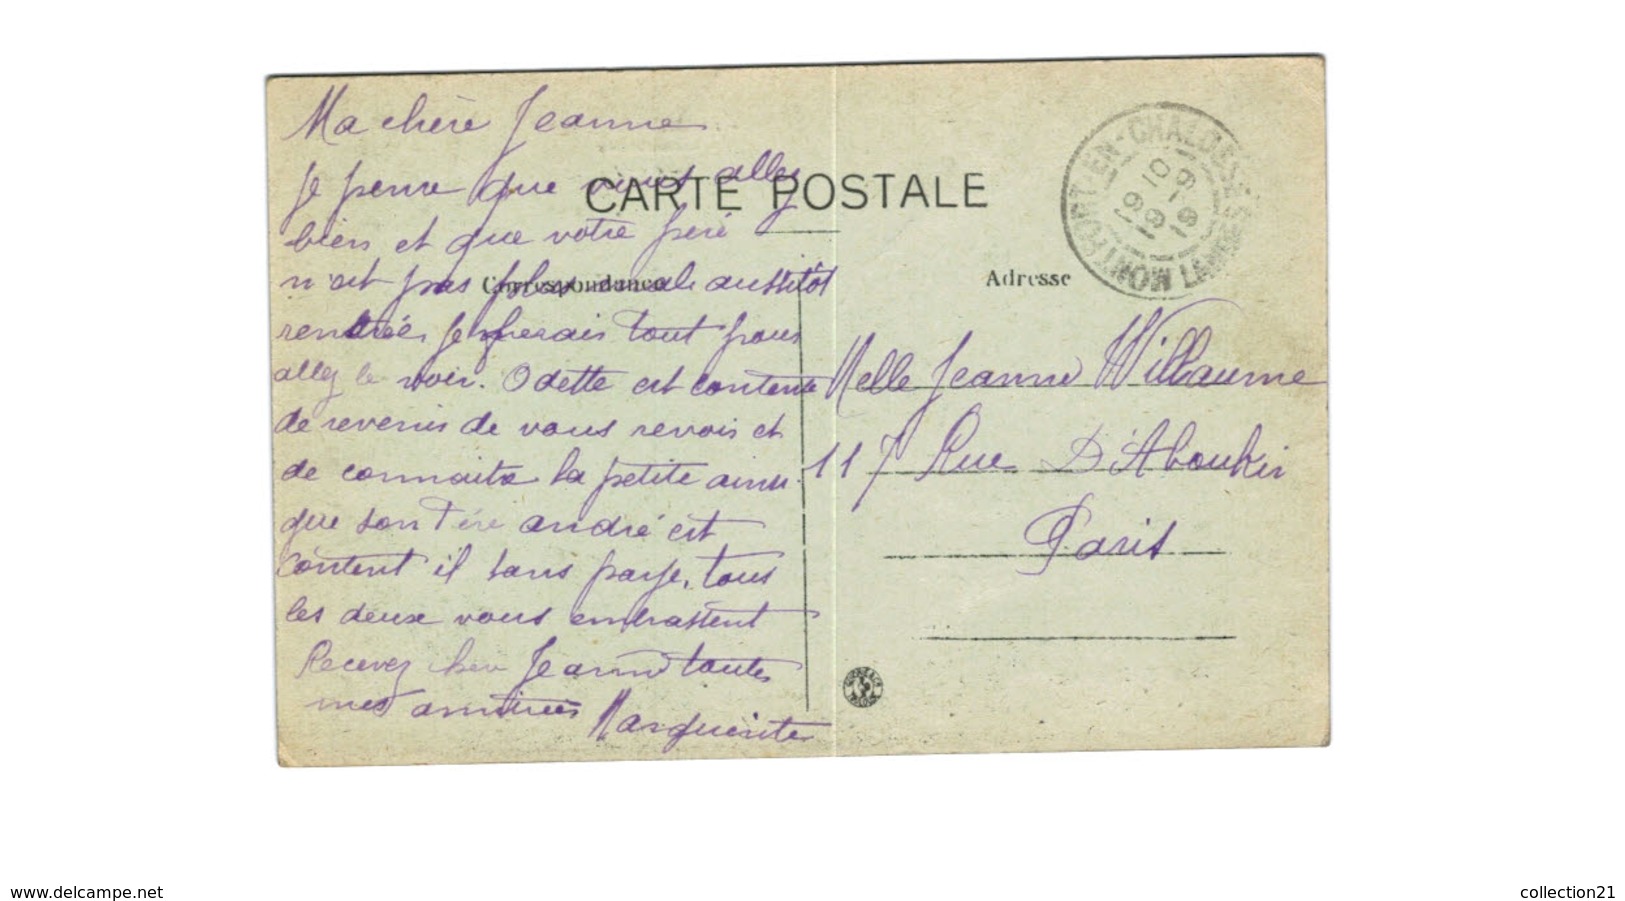 Ma chère Jeanne
Je pense que vous allez
bien et que votre père
n'est pas plus mal aussitôt
rentrées je ferais tout pour
allez le voir. Odette est contente
de revenir de vous revois et
de connaitre la petite ainsi
que son Père andré est
content il sans passe, tous
les deux vous embrassent
Recevez chère Jeanne toutes
mes amitiées Marguerite
CARTE POSTALE
Correspondance
Adresse
MONTFORT-EN-CHALOSSE
LANDES
Melle Jeanne Willaume
117 Rue D'Aboukir
Paris
www.delcampe.net
collection21